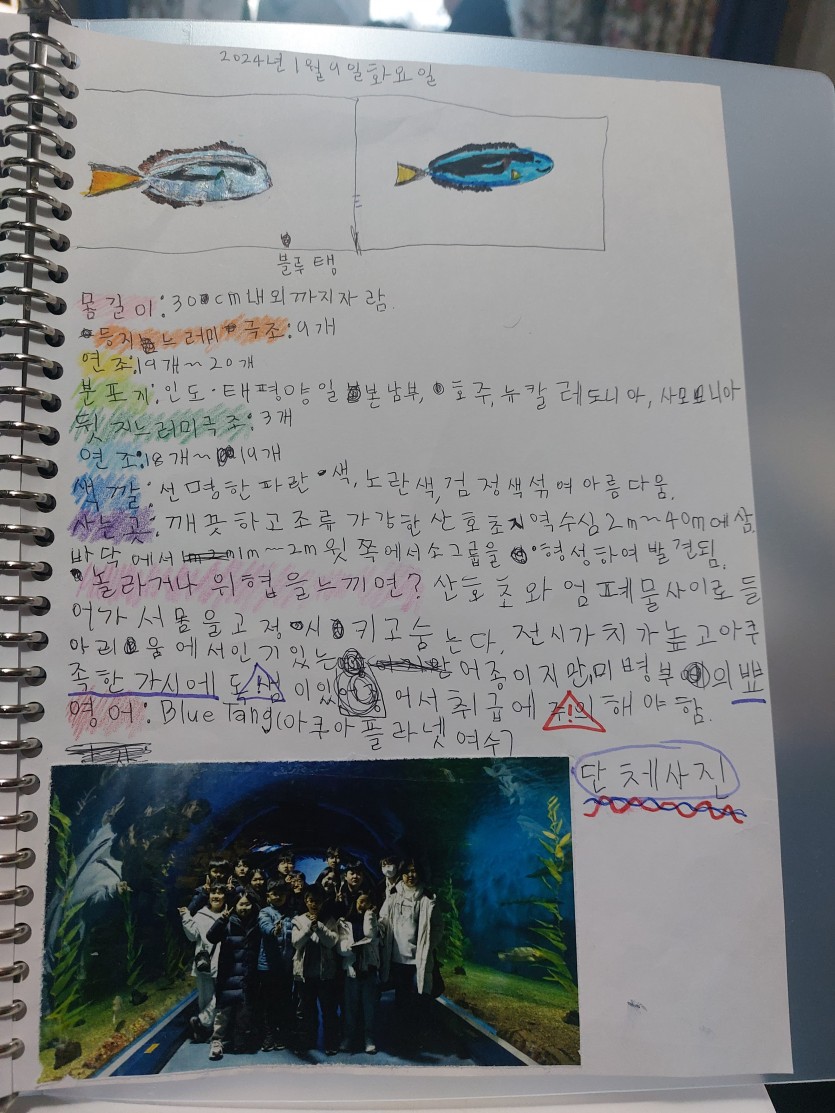 2024년 1월 9일 화요일
블루탱
몸길이: 30cm 내외까지 자람.
등지느러미 극조: 9개
연조: 19개~20개
분포지: 인도·태평양 일본 남부, 호주, 뉴칼레도니아, 사모모니아
뒷지느러미극조: 3개
연조: 18개~19개
색깔: 선명한 파란색, 노란색, 검정색 섞여 아름다움.
사는 곳: 깨끗하고 조류가 강한 산호초 지역 수심 2m~40m에 삶.
바닥에서 1m~2m 윗쪽에서 소그룹을 형성하여 발견됨.
놀라거나 위협을 느끼면? 산호초와 엄폐물 사이로 들
어가서 몸을 고정시키고 숨는다. 전시가치가 높고 아쿠
아리움에서 인기있는 어종이지만, 미병부의 뾰
족한 가시에 독성이 있어서 취급에 주의해야함.
영어: Blue Tang(아쿠아플라넷 여수)
단체사진